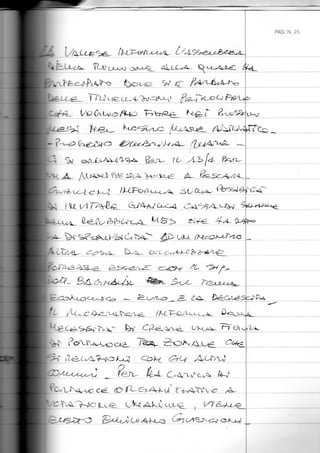 PAG. N. 25
VALLESE INFORMA L'ASSEMBLEA
DELLA RIUNIONE ALLA QUALE HA
PARTECIPATO DOVE SI È PARLATO
DELLE TRIVELLAZIONI PETROLIFERE
CHE VOGLIONO FARE NEI PROSSIMI
MESI NEL NOSTRO MARE ADRIATICO
SI ORGANIZZA PER IL 13/4 PER
LA MANIFESTAZIONE A PESCARA
INFORMA SULLA POSSIBILITÀ
DI INVITARE GIANLUCA CASTALDI
DELLA REPUBBLICA M5S CHE HA DATO
LA DISPONIBILITÀ AD UN INCONTRO
ALTRA COSA DA ORGANIZZARE
POTREBBE ESSERE CON IL
SUL TEMA
ECONOMICO - EURO E LA DECRESCITA
IL INFORMA DELLA
NECESSITÀ DI CREARE UNA FIGURA
DI PORTAVOCE ZONALE CHE
SI RELAZIONI CON GLI ALTRI
COMUNI - PER LA CARICA DI
PORTAVOCE ORGANIZZATIVO A
VOTAZIONE UNANIME, VIENE
ELETTO EMILIANO